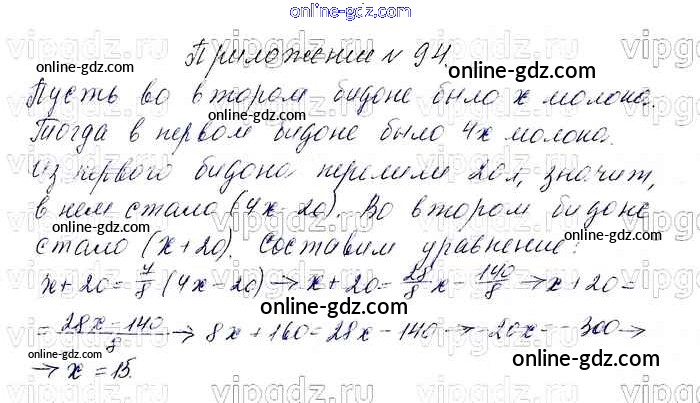 online-gdz.com
Приложение № 94.
Пусть во втором бидоне было x молока.
Тогда в первом бидоне было 4x молока.
Из первого бидона перелили 20л, значит,
в нем стало (4x-20). Во втором бидоне
стало (x+20). Составим уравнение:
x+20=7/8(4x-20)→x+20=28/8x-140/8→x+20=
=28x-140/8→8x+160=28x-140→-20x=-300→
→x=15.
online-gdz.com
online-gdz.com
online-gdz.com
online-gdz.com
online-gdz.com
online-gdz.com
online-gdz.com
online-gdz.com
online-gdz.com
online-gdz.com
online-gdz.com